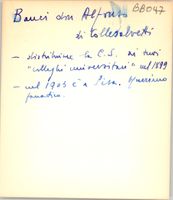 BB047
Banci don Alfonso
di Collesalvetti
– distribuisce la C.S. ai suoi
"colleghi universitari" nel 1899
– nel 1905 è a Pisa.
fanatico.